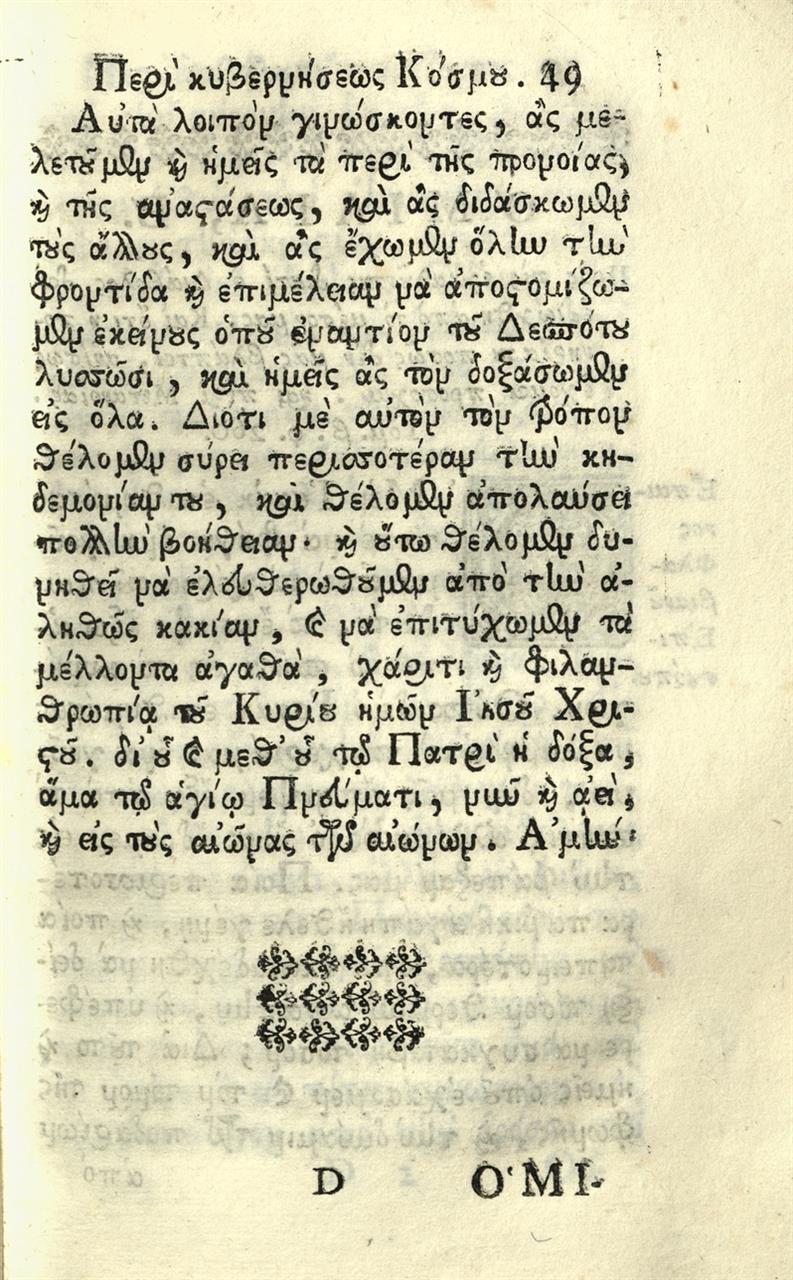 Περὶ κυβερνήσεως Κόσμου. 49
Αὐτὰ λοιπὸν γινώσκοντες, ἂς με-
λετοῦμεν καὶ ἡμεῖς τὰ περὶ τῆς προνοίας,
καὶ τῆς ἀναστάσεως, καὶ ἂς διδάσκωμεν
τοὺς ἄλλους, καὶ ἂς ἔχωμεν ὅλην τὴν
φροντίδα καὶ ἐπιμέλειαν νὰ ἀποστομίζω-
μεν ἐκείνους ὁποῦ ἐναντίον τοῦ Δεσπότου
λυσσῶσι, καὶ ἡμεῖς ἂς τὸν δοξάσωμεν
εἰς ὅλα. Διότι μὲ αὐτὸν τὸν τρόπον
θέλομεν σύρει περισσοτέραν τὴν κη-
δεμονίαν του, καὶ θέλομεν ἀπολαύσει
πολλὴν βοήθειαν· καὶ οὕτω θέλομεν δυ-
νηθεῖ νὰ ἐλευθερωθοῦμεν ἀπὸ τὴν ἀ-
ληθῶς κακίαν, καὶ νὰ ἐπιτύχωμεν τὰ
μέλλοντα ἀγαθὰ, χάριτι καὶ φιλαν-
θρωπίᾳ τοῦ Κυρίου ἡμῶν Ἰησοῦ Χρι-
στοῦ. δι' οὗ καὶ μεθ' οὗ τῷ Πατρὶ ἡ δόξα,
ἅμα τῷ ἁγίῳ Πνεύματι, νῦν καὶ ἀεὶ,
καὶ εἰς τοὺς αἰῶνας τῶν αἰώνων. Ἀμήν·
D ὉΜΙ-